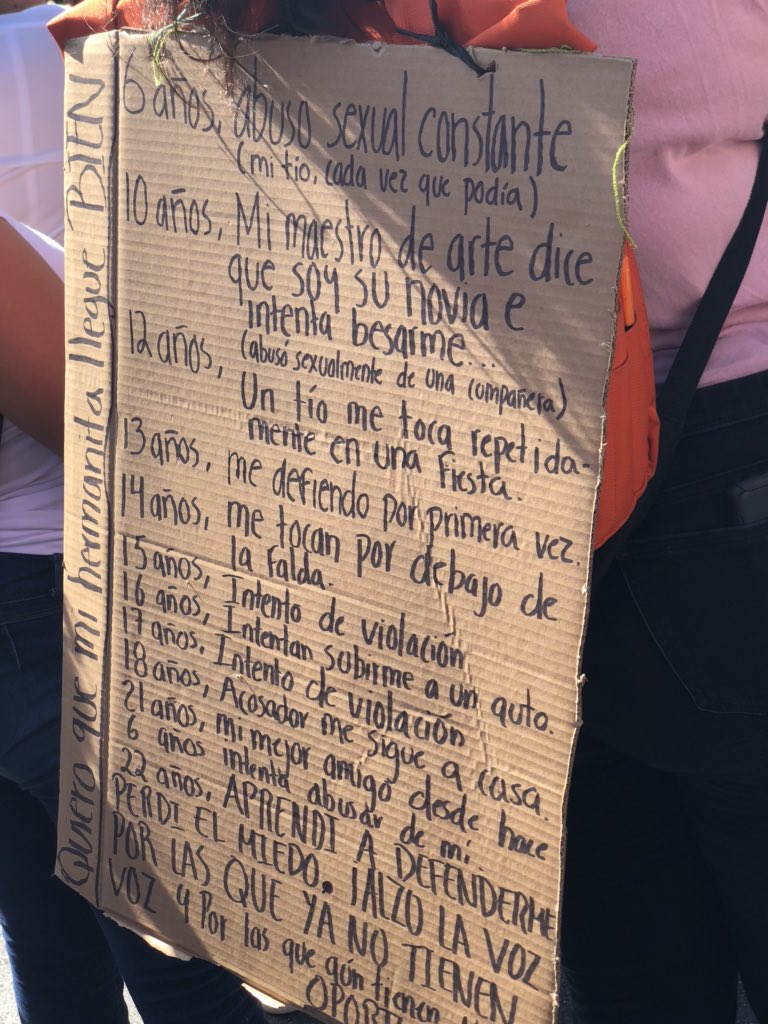 Quiero que mi hermanita llegue BIEN
6 años, abuso sexual constante
(mi tío, cada vez que podía)
10 años, Mi maestro de arte dice
que soy su novia e
intenta besarme...
(abusó sexualmente de una compañera)
12 años, Un tío me toca repetida-
mente en una fiesta.
13 años, me defiendo por primera vez.
14 años, me tocan por debajo de
la falda.
15 años, Intento de violación
16 años, Intentan subirme a un auto.
17 años, Intento de violación
18 años, Acosador me sigue a casa.
21 años, mi mejor amigo desde hace
6 años intenta abusar de mí.
22 años, APRENDI A DEFENDERME
PERDI EL MIEDO. ¡ALZO LA VOZ
POR LAS QUE YA NO TIENEN
VOZ y Por las que aún tienen